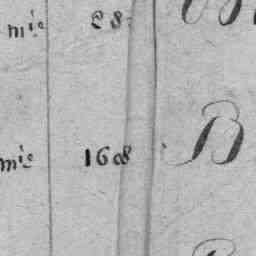 m.ie 28
m.ie 1608 B